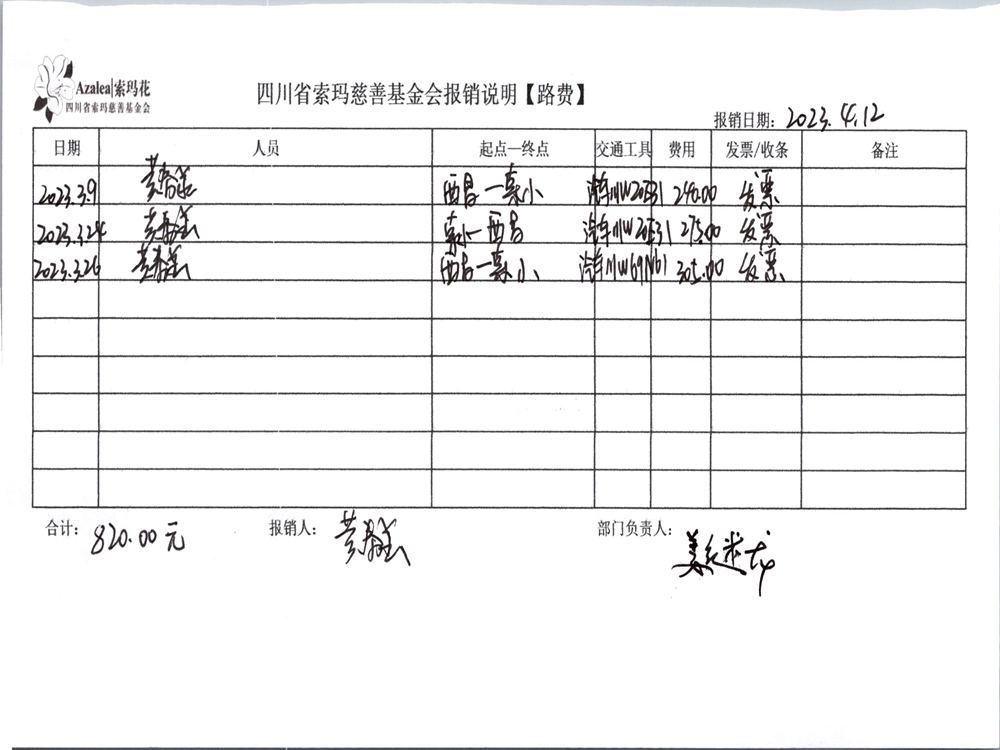 Azalea|索玛花
四川省索玛慈善基金会
四川省索玛慈善基金会报销说明【路费】
报销日期: 2023.4.12
日期 人员 起点—终点 交通工具 费用 发票/收条 备注
2023.3.9 黄 西昌—慕小 汽车川W 240.00 发票
2023.3.24 黄 慕小—西昌 汽车川W 275.00 发票
2023.3.26 黄 西昌—慕小 汽车川W 305.00 发票
合计: 820.00元 报销人: 黄 部门负责人: 龙